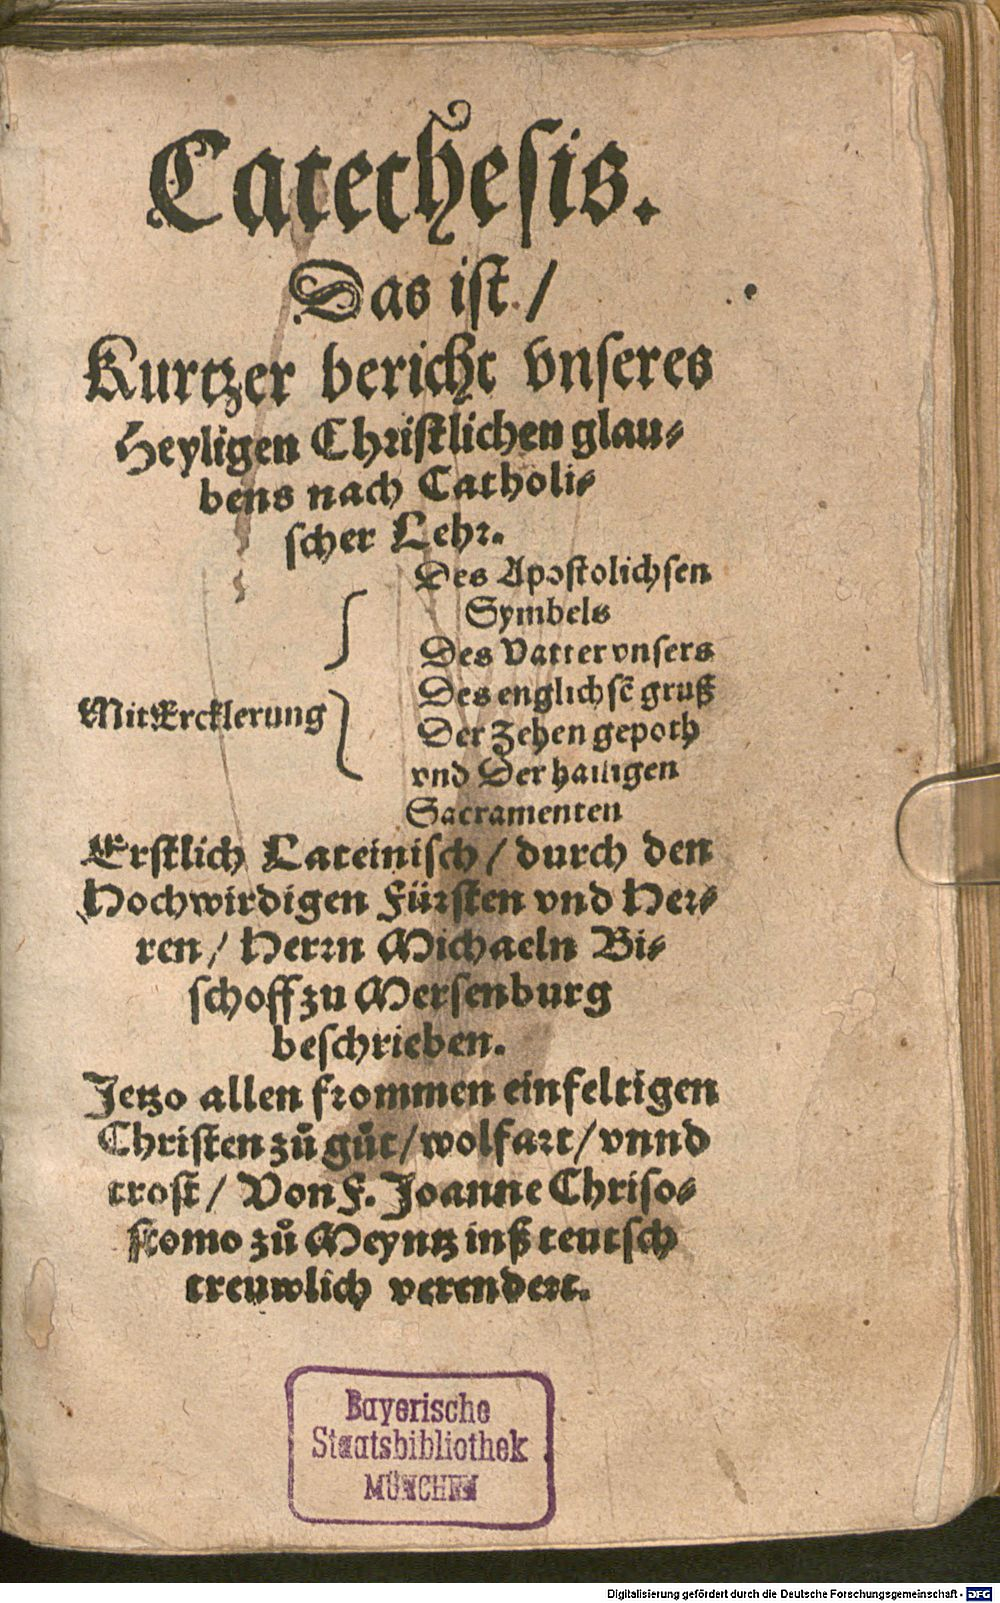 Catechesis.
Das ist /
Kurtzer bericht vnseres
Heyligen Christlichen glau-
bens nach Catholi-
scher Lehr.
Des Apostolichsen
Symbels
Des Vatter vnsers
Des englichsē gruß
Mit Ercklerung
Der Zehen gepoth
vnd Der hailigen
Sacramenten
Erstlich Lateinisch / durch den
Hochwirdigen Fürsten vnd Her-
ren / Herrn Michaeln Bi-
schoff zu Mersenburg
beschrieben.
Jetzo allen frommen einfeltigen
Christen zů gůt / wolfart / vnnd
trost / Von F. Joanne Chriso-
stomo zů Meyntz inß teutsch
treuwlich verendert.
Bayerische
Staatsbibliothek
MÜNCHEN
Digitalisierung gefördert durch die Deutsche Forschungsgemeinschaft - DFG